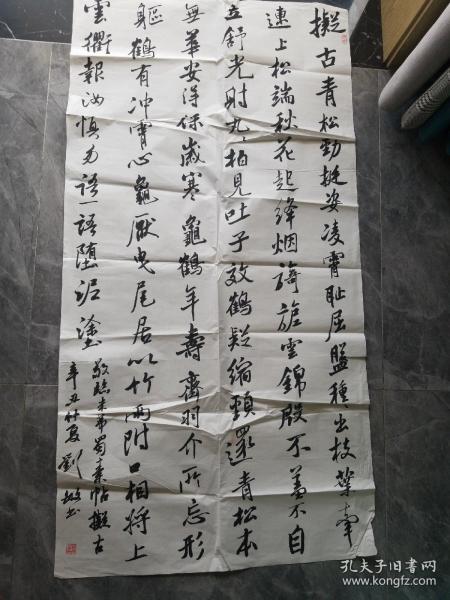 擬古青松勁挺姿凌霄耻屈盤種〻出枝葉牽
連上松端秋花起絳烟旖旎雲錦殷不羞不自
立舒光射丸〻柏見吐子效鶴疑縮頸還青松本
無華安得保歲寒龜鶴年壽齊羽介所忘形
軀鶴有冲霄心龜厭曳尾居以竹兩附口相將上
雲衢報汝慎勿語一語墮泥塗
敬臨米芾蜀素帖擬古
辛丑仲夏劉書
孔夫子旧书网
www.kongfz.com